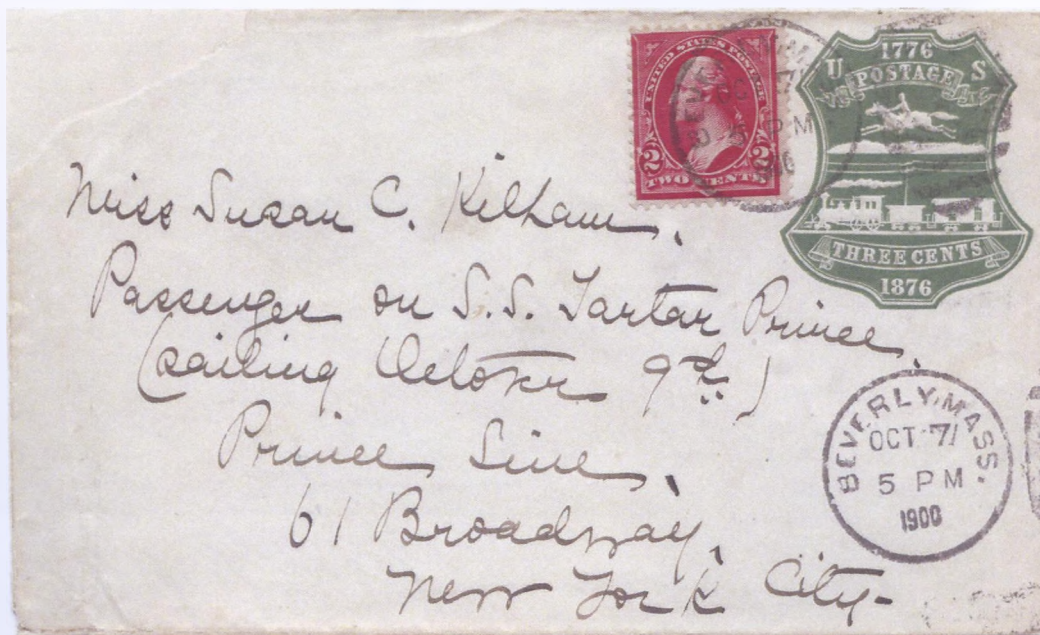 UNITED STATES POSTAGE
2 2
TWO CENTS
1776
U S
POSTAGE
THREE CENTS
1876
Miss Susan C. Kilham.
Passenger on S.S. Tartar Prince,
(sailing October 9th)
Prince Line,
61 Broadway,
New York City-
BEVERLY, MASS.
OCT 7
5 PM
1900